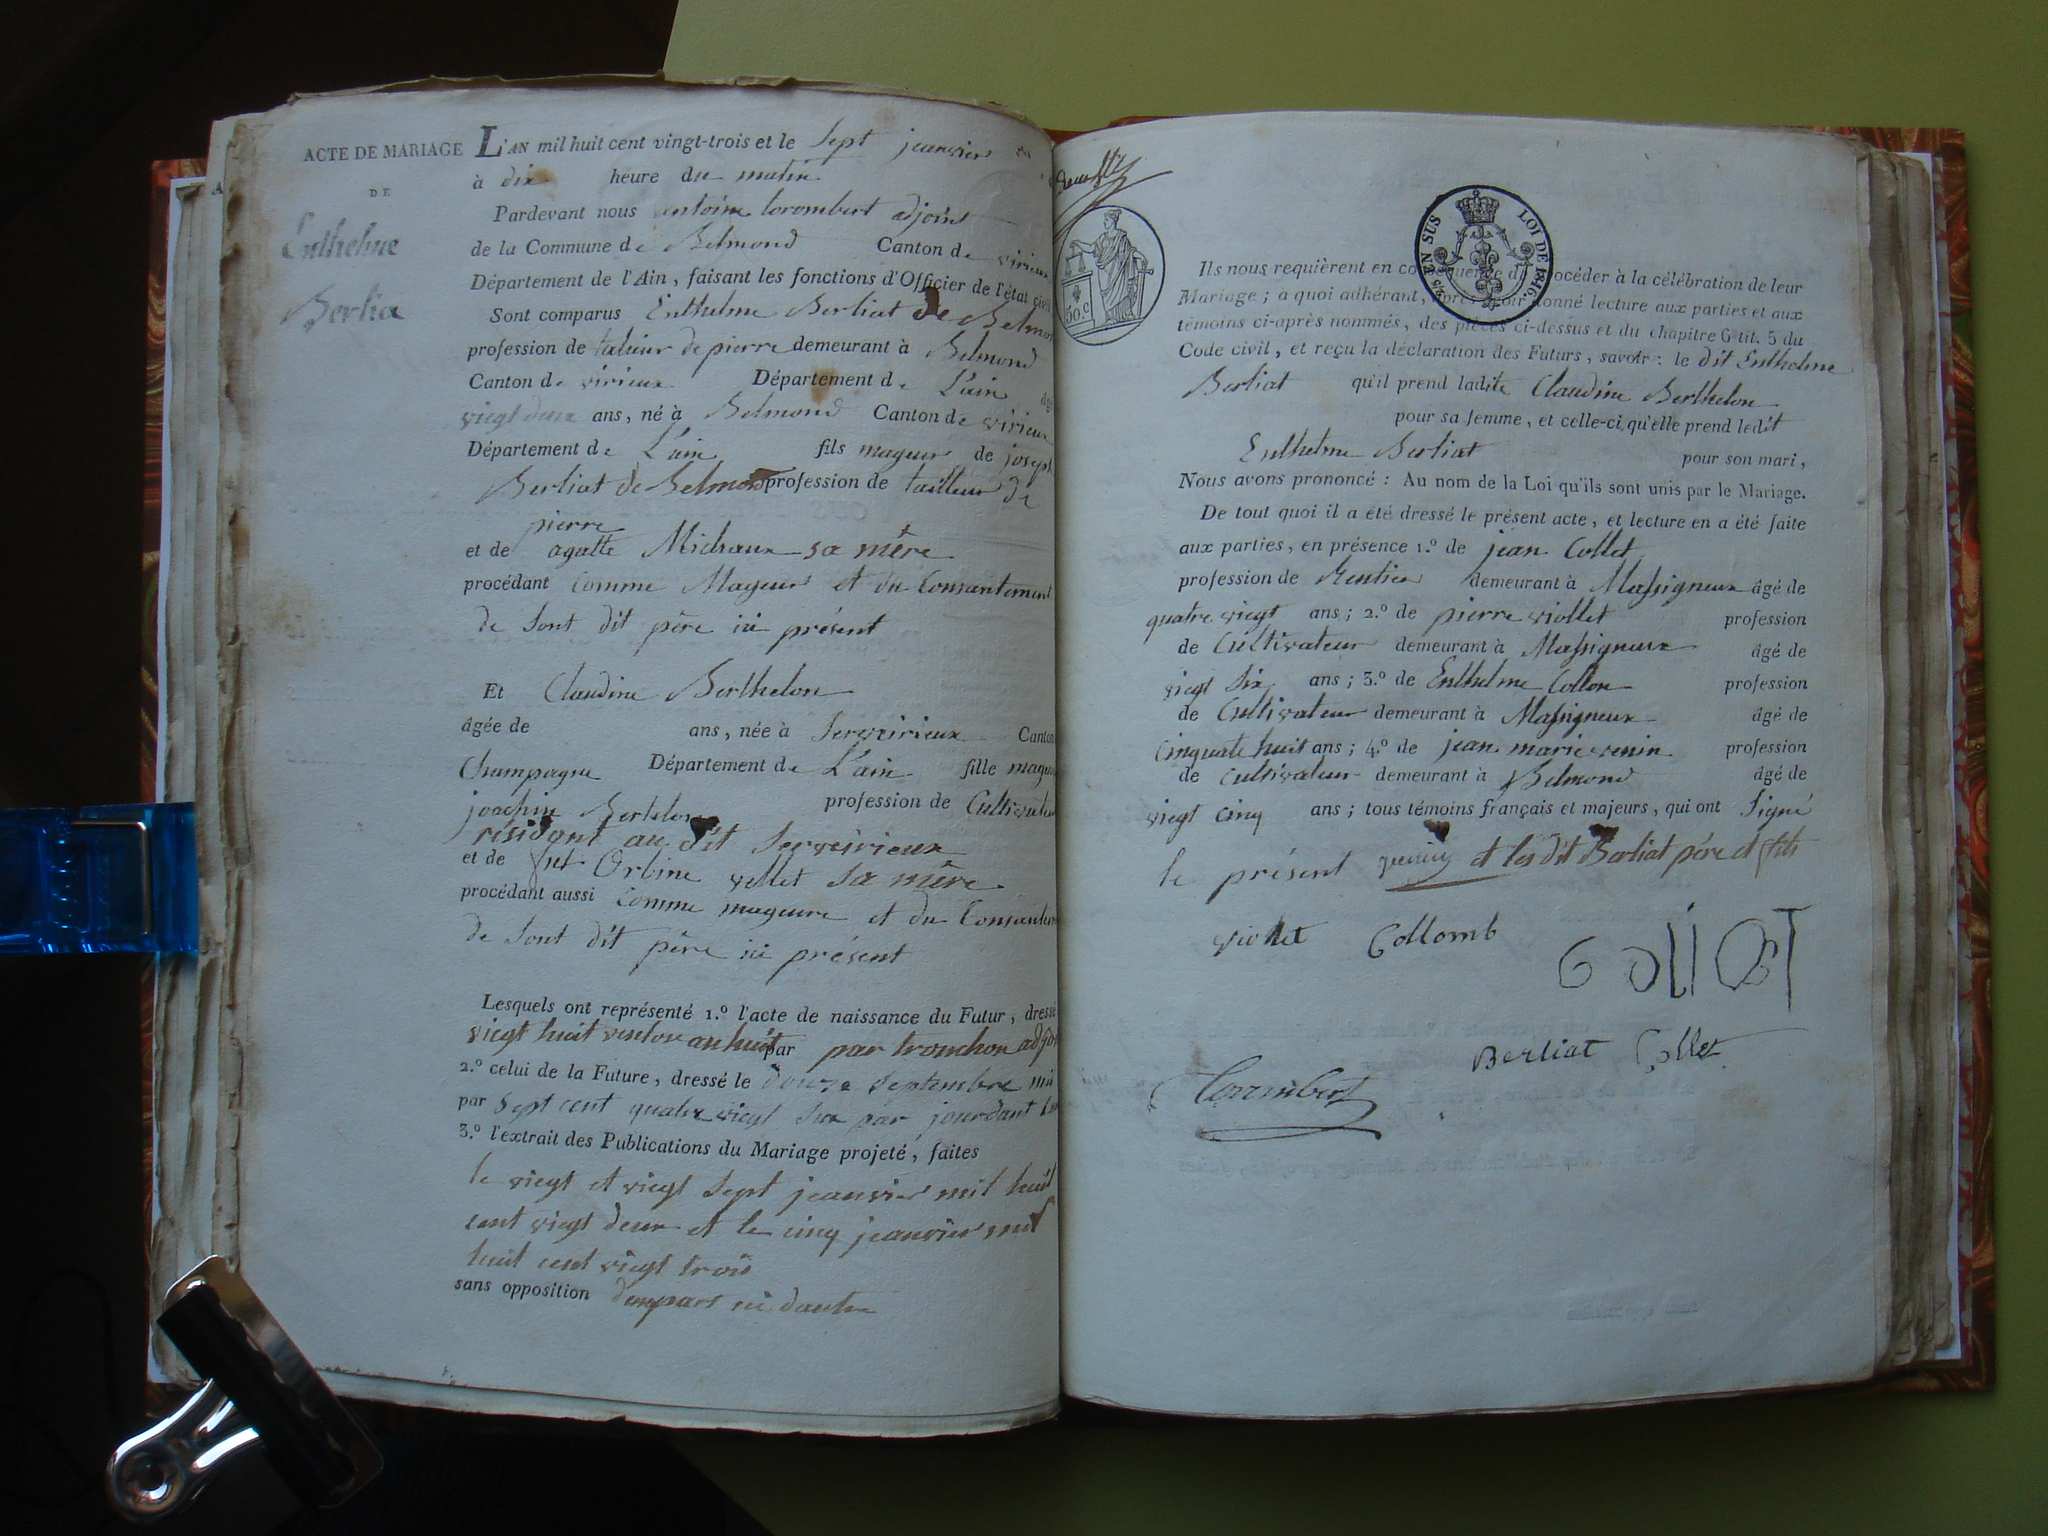 ACTE DE MARIAGE
DE
Enthelme
Berlia
L'AN mil huit cent vingt-trois et le sept jeanvier
à dix heure du matin
Pardevant nous antoine torombert adjoint
de la Commune de Belmond Canton de virieux
Département de l'Ain, faisant les fonctions d'Officier de l'état civil
Sont comparus Enthelme Berliat de Belmond
profession de talieur de pierre demeurant à Belmond
Canton de virieux Département de L'ain âgé
viegt deux ans, né à Belmond Canton de virieux
Département de L'ain fils mageur de joseph
Berliat de Belmond profession de tailleur de
pierre
et de agatte Michaux sa mère
procédant comme Mageur et du Consantement
de sont dit père ici présent
Et Claudine Berthelon
âgée de ans, née à Serverieux Canton
Champagne Département de L'ain fille mageure
joachin Bertelon profession de Cultivateur
résidant au dit Serverieux
et de fut Orbine vellet sa mère
procédant aussi comme mageure et du Consantement
de sont dit père ici présent
Lesquels ont représenté 1.º l'acte de naissance du Futur, dressé
viegt huit ventose an huit par par tronchon adjoint
2.º celui de la Future, dressé le douze septembre mil
par sept cent quatre viegt six par jourdant
3.º l'extrait des Publications du Mariage projeté, faites
le viegt et viegt sept jeanvier mil huit
cent viegt deux et le cinq jeanvier mil
huit cent viegt trois
sans opposition d'aucpart ni dautre
50.C
EN SUS LOI DE 1816
Ils nous requièrent en conséquence de procéder à la célébration de leur
Mariage; à quoi adhérant, après avoir donné lecture aux parties et aux
témoins ci-après nommés, des pièces ci-dessus et du chapitre 6 tit. 5 du
Code civil, et reçu la déclaration des Futurs, savoir: le dit Enthelme
Berliat qu'il prend ladite Claudine Berthelon
pour sa femme, et celle-ci qu'elle prend ledit
Enthelme Berliat pour son mari,
Nous avons prononcé: Au nom de la Loi qu'ils sont unis par le Mariage.
De tout quoi il a été dressé le présent acte, et lecture en a été faite
aux parties, en présence 1.º de jean Collet
profession de Rentier demeurant à Massigneux âgé de
quatre viegt ans; 2.º de pierre viollet profession
de Cultivateur demeurant à Massigneux âgé de
viegt six ans; 3.º de Enthelme Collon profession
de Cultivateur demeurant à Massigneux âgé de
cinquate huit ans; 4.º de jean marie venin profession
de cultivateur demeurant à Belmond âgé de
viegt cinq ans; tous témoins français et majeurs, qui ont signé
le présent et les dit Berliat père et fils
violet Collomb
Collet
Berliat Collet
Torombert